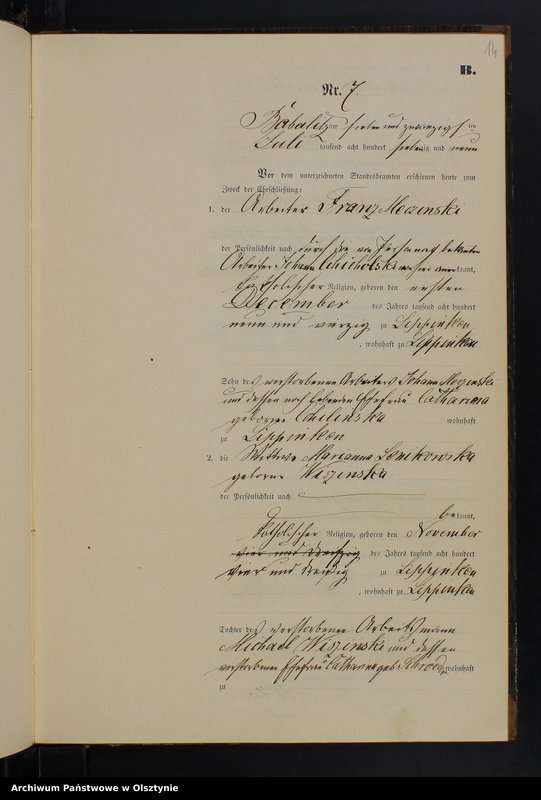 14
B.
Nr. 7
Babalitz am sieben und zwanzigsten
Juli tausend acht hundert siebenzig und neun
Vor dem unterzeichneten Standesbeamten erschienen heute zum
Zweck der Eheschließung:
1. der Arbeiter Franz
der Persönlichkeit nach durch bekannten
Arbeiter Johann kannt,
katholischer Religion, geboren den ersten
December des Jahres tausend acht hundert
neun und vierzig zu Lippinken
, wohnhaft zu Lippinken
Sohn des verstorbenen Arbeiters Johann
und dessen noch lebenden Ehefrau Catharina
geborgen wohnhaft
zu Lippinken
2. die Wittwe Marianna Lewikowska
geborne Wiszinska
der Persönlichkeit nach
bekannt,
katholischer Religion, geboren den November
vier und dreißig des Jahres tausend acht hundert
vier und dreißig zu Lippinken
, wohnhaft zu Lippinken
Tochter des verstorbenen Arbeitsmann
Michael Wiszinski und dessen
verstorbenen Ehefrau Catharina geb wohnhaft
zu
Archiwum Państwowe w Olsztynie